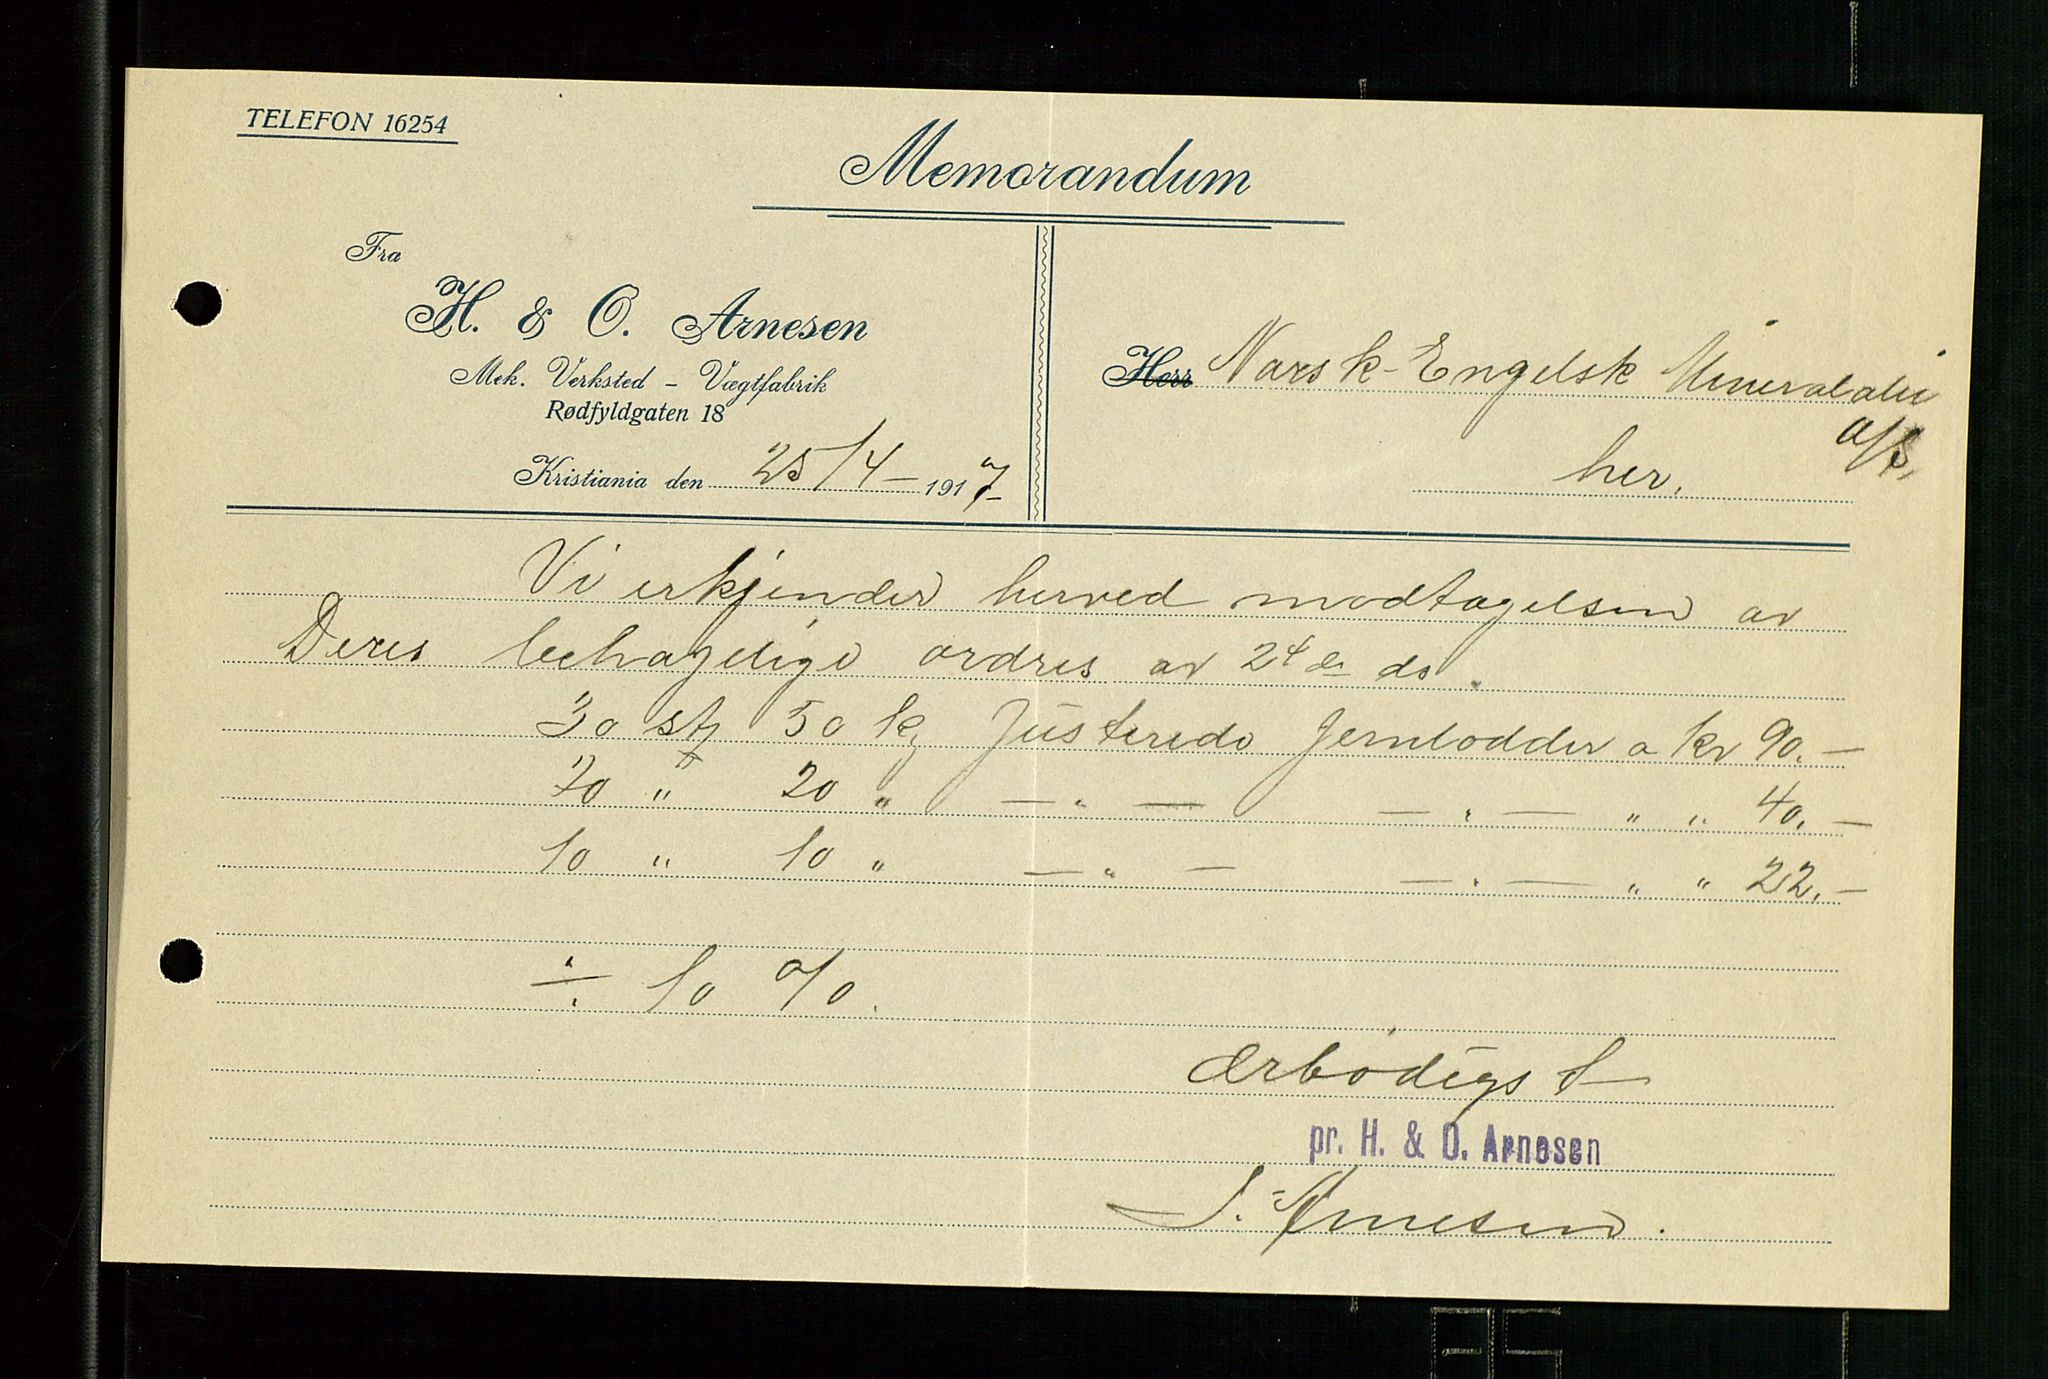 TELEFON 16254
Memorandum
Fra
H. & O. Arnesen
Mek. Verksted - Vægtfabrik
Rødfyldgaten 18
Kristiania den 25/4 - 1917
Herr Norsk-Engelsk Mineralolie
a/s.
her.
Vi erkjender herved modtagelsen av
Deres behagelige ordres av 24 de ds.
30 stk 50 kg Justerede Jernlodder a kr 90.-
20 " 20 " - " - - " - " " 40.-
10 " 10 " - " - - " - " " 22.-
÷ 10 %.
Ærbødigst
pr. H. & O. Arnesen
S. Arnesen.